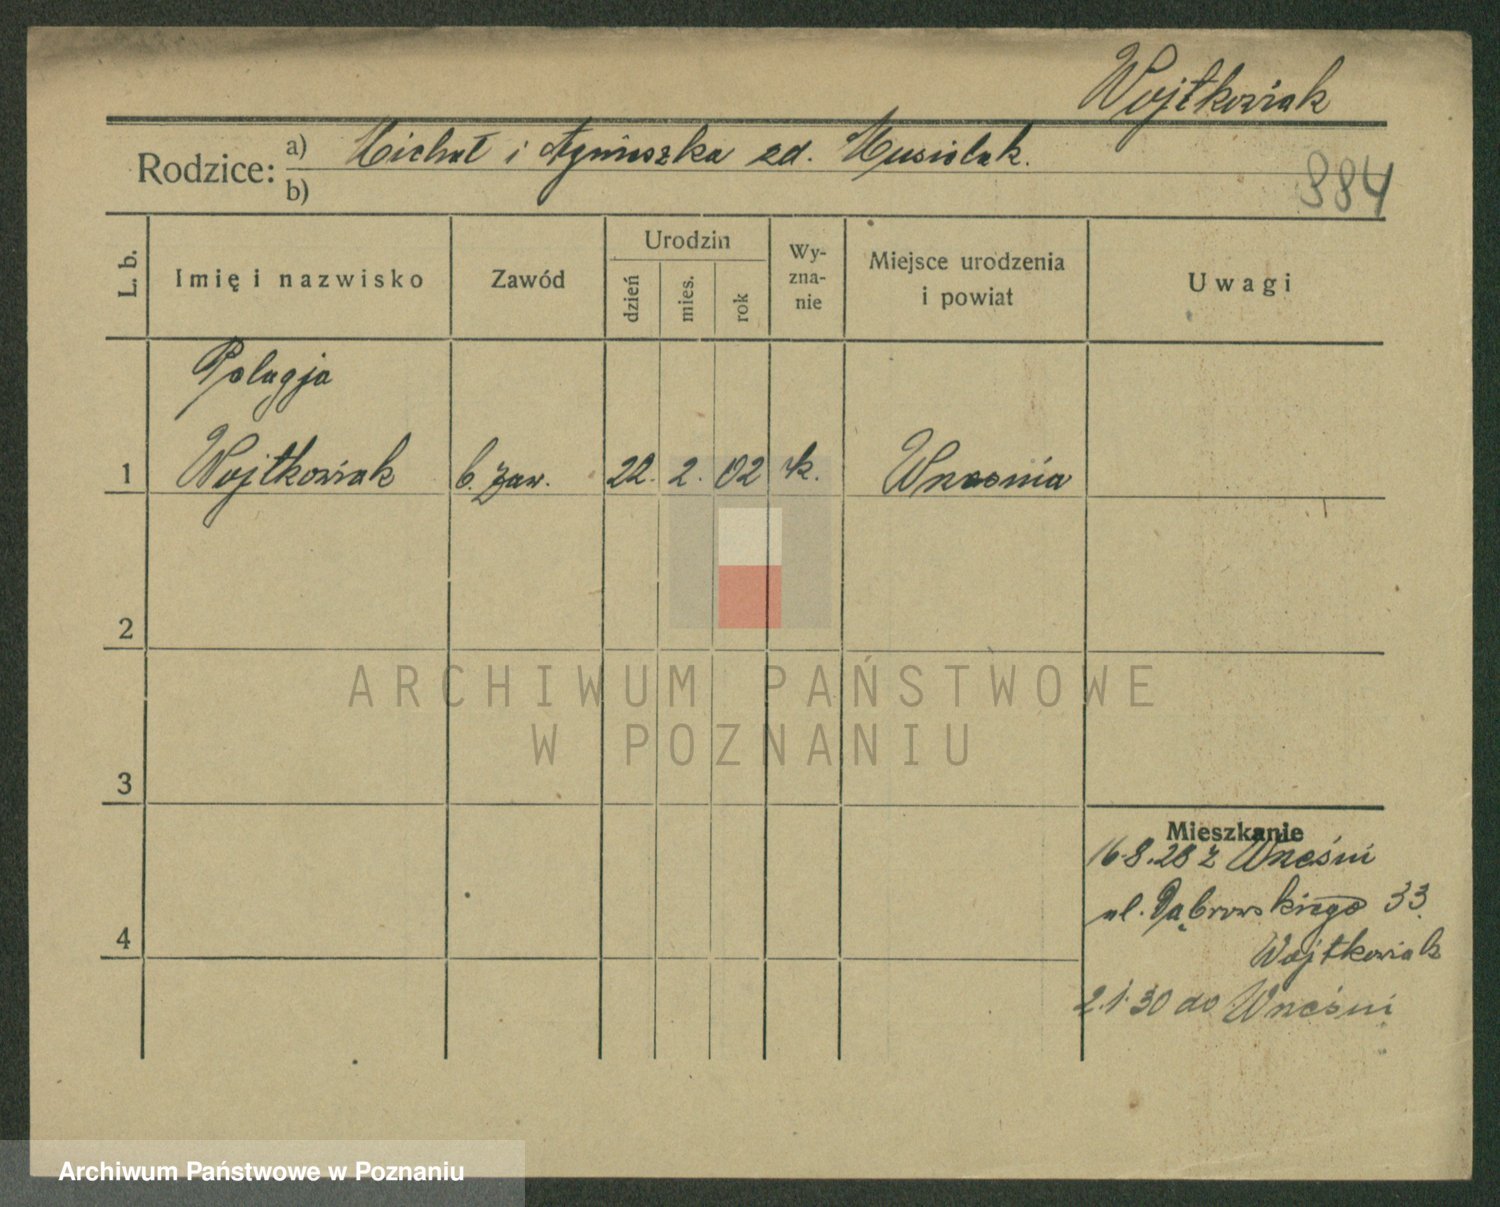 Wojtkowiak
Rodzice: a) Michał i Agnieszka zd. Musielak.
b)
884
L. b.
Imię i nazwisko
Zawód
Urodzin
dzień
mies.
rok
Wy-
zna-
nie
Miejsce urodzenia
i powiat
Uwagi
Pelagja
1 Wojtkowiak b. zaw. 22. 2. 02 rk. Września
2
3
4
Mieszkanie
16.8.28 z Wrześni
ul. Dąbrowskiego 33
Wojtkowiak
2.1.30 do Wrześni
ARCHIWUM PAŃSTWOWE
W POZNANIU
Archiwum Państwowe w Poznaniu